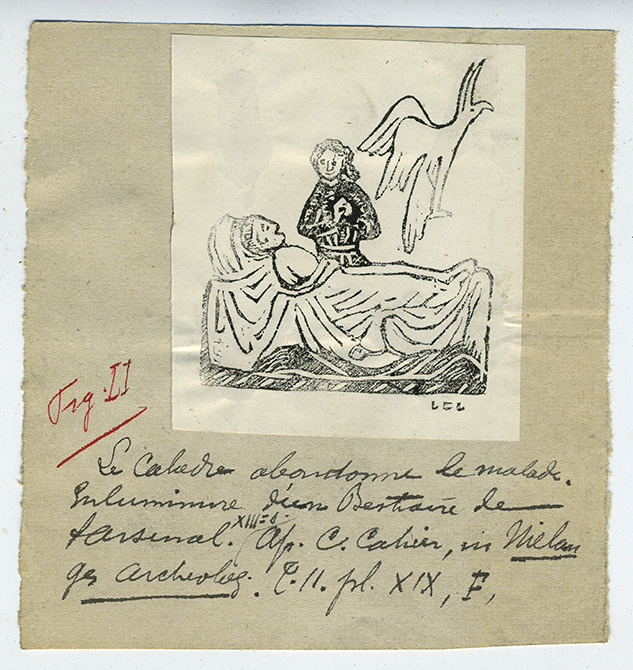 LCL
Fig. II
Le Caladre abandonne le malade.
Enluminure d'un Bestiaire de
l'Arsenal. XIIIe s. Ap. C. Cahier, in Mélan
ges archéolog. T. II. pl. XIX, F,